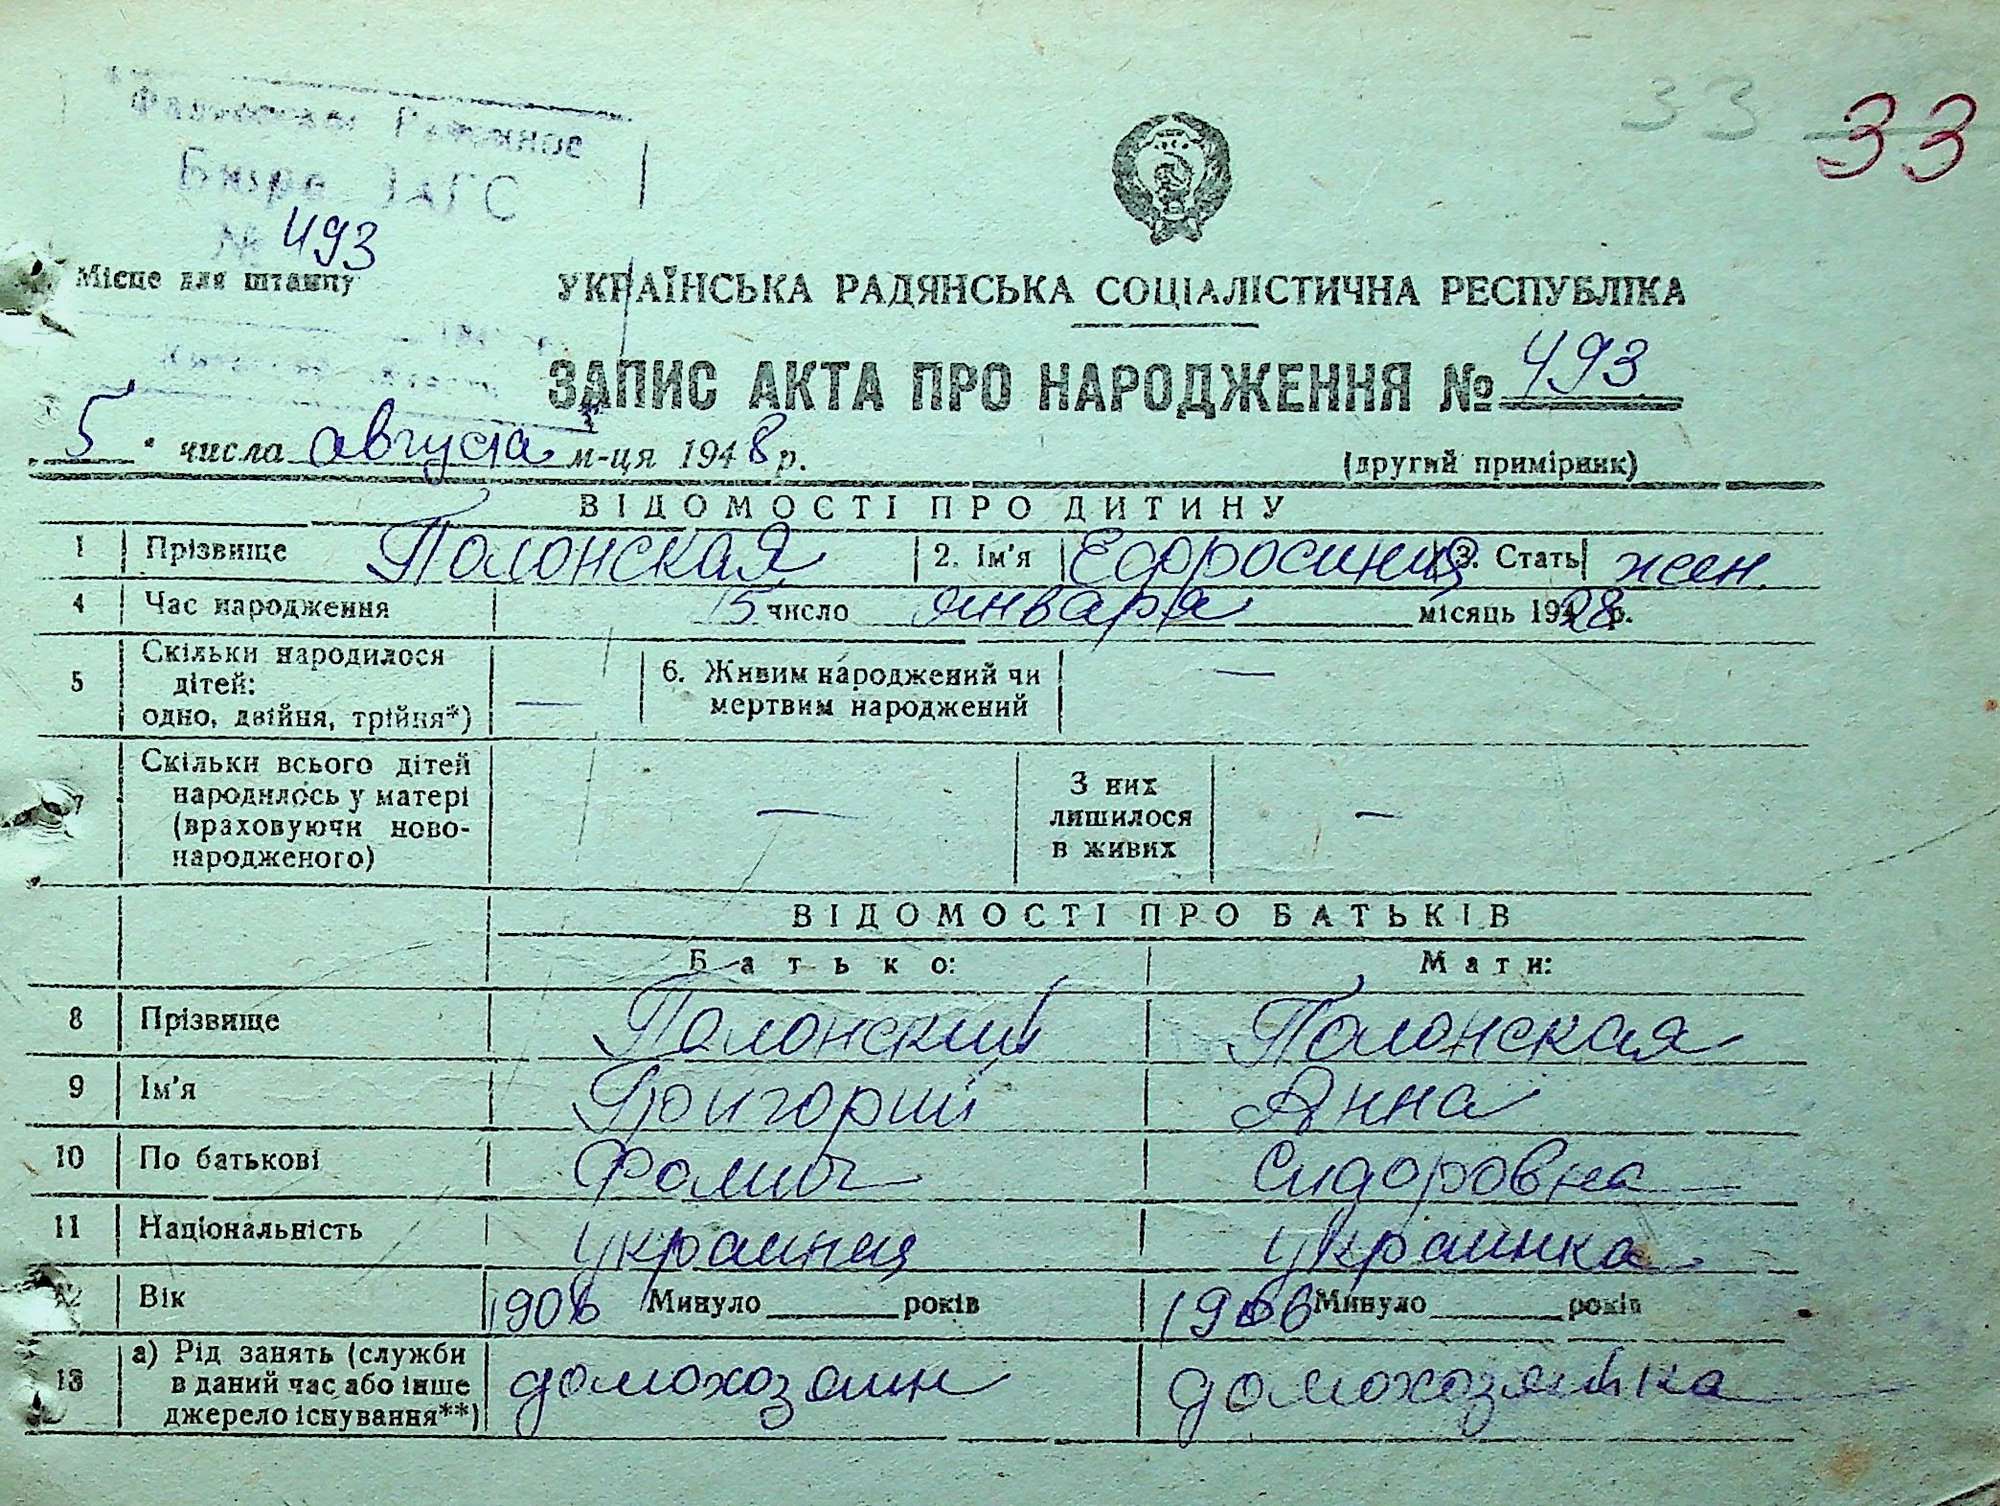 33 33
Районное
Бюро ЗАГС
№ 493
Місце для штампу
УКРАЇНСЬКА РАДЯНСЬКА СОЦІАЛІСТИЧНА РЕСПУБЛІКА
ЗАПИС АКТА ПРО НАРОДЖЕННЯ № 493
5 числа августа м-ця 1948 р.
(другий примірник)
ВІДОМОСТІ ПРО ДИТИНУ
1 Прізвище Полонская 2. Ім'я Ефросиния 3. Стать жен.
4 Час народження 5 число января місяць 1928 р.
5 Скільки народилося дітей: одно, двійня, трійня*) — 6. Живим народжений чи мертвим народжений —
7 Скільки всього дітей народилось у матері (враховуючи ново-народженого) — З них лишилося в живих —
ВІДОМОСТІ ПРО БАТЬКІВ
Батько: Мати:
8 Прізвище Полонский Полонская
9 Ім'я Григорий Анна
10 По батькові Фомич Сидоровна
11 Національність украинец украинка
12 Вік 1906 Минуло ______ років 1906 Минуло ______ років
13 а) Рід занять (служби в даний час або інше джерело існування**) домохозяин домохозяйка